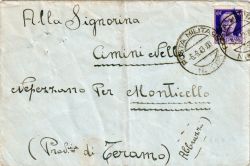 Alla Signorina
Amini Nella
Nepezzano Per Monticello
(Prov. di Teramo)
(Abruzzi)
POSTA MILITARE